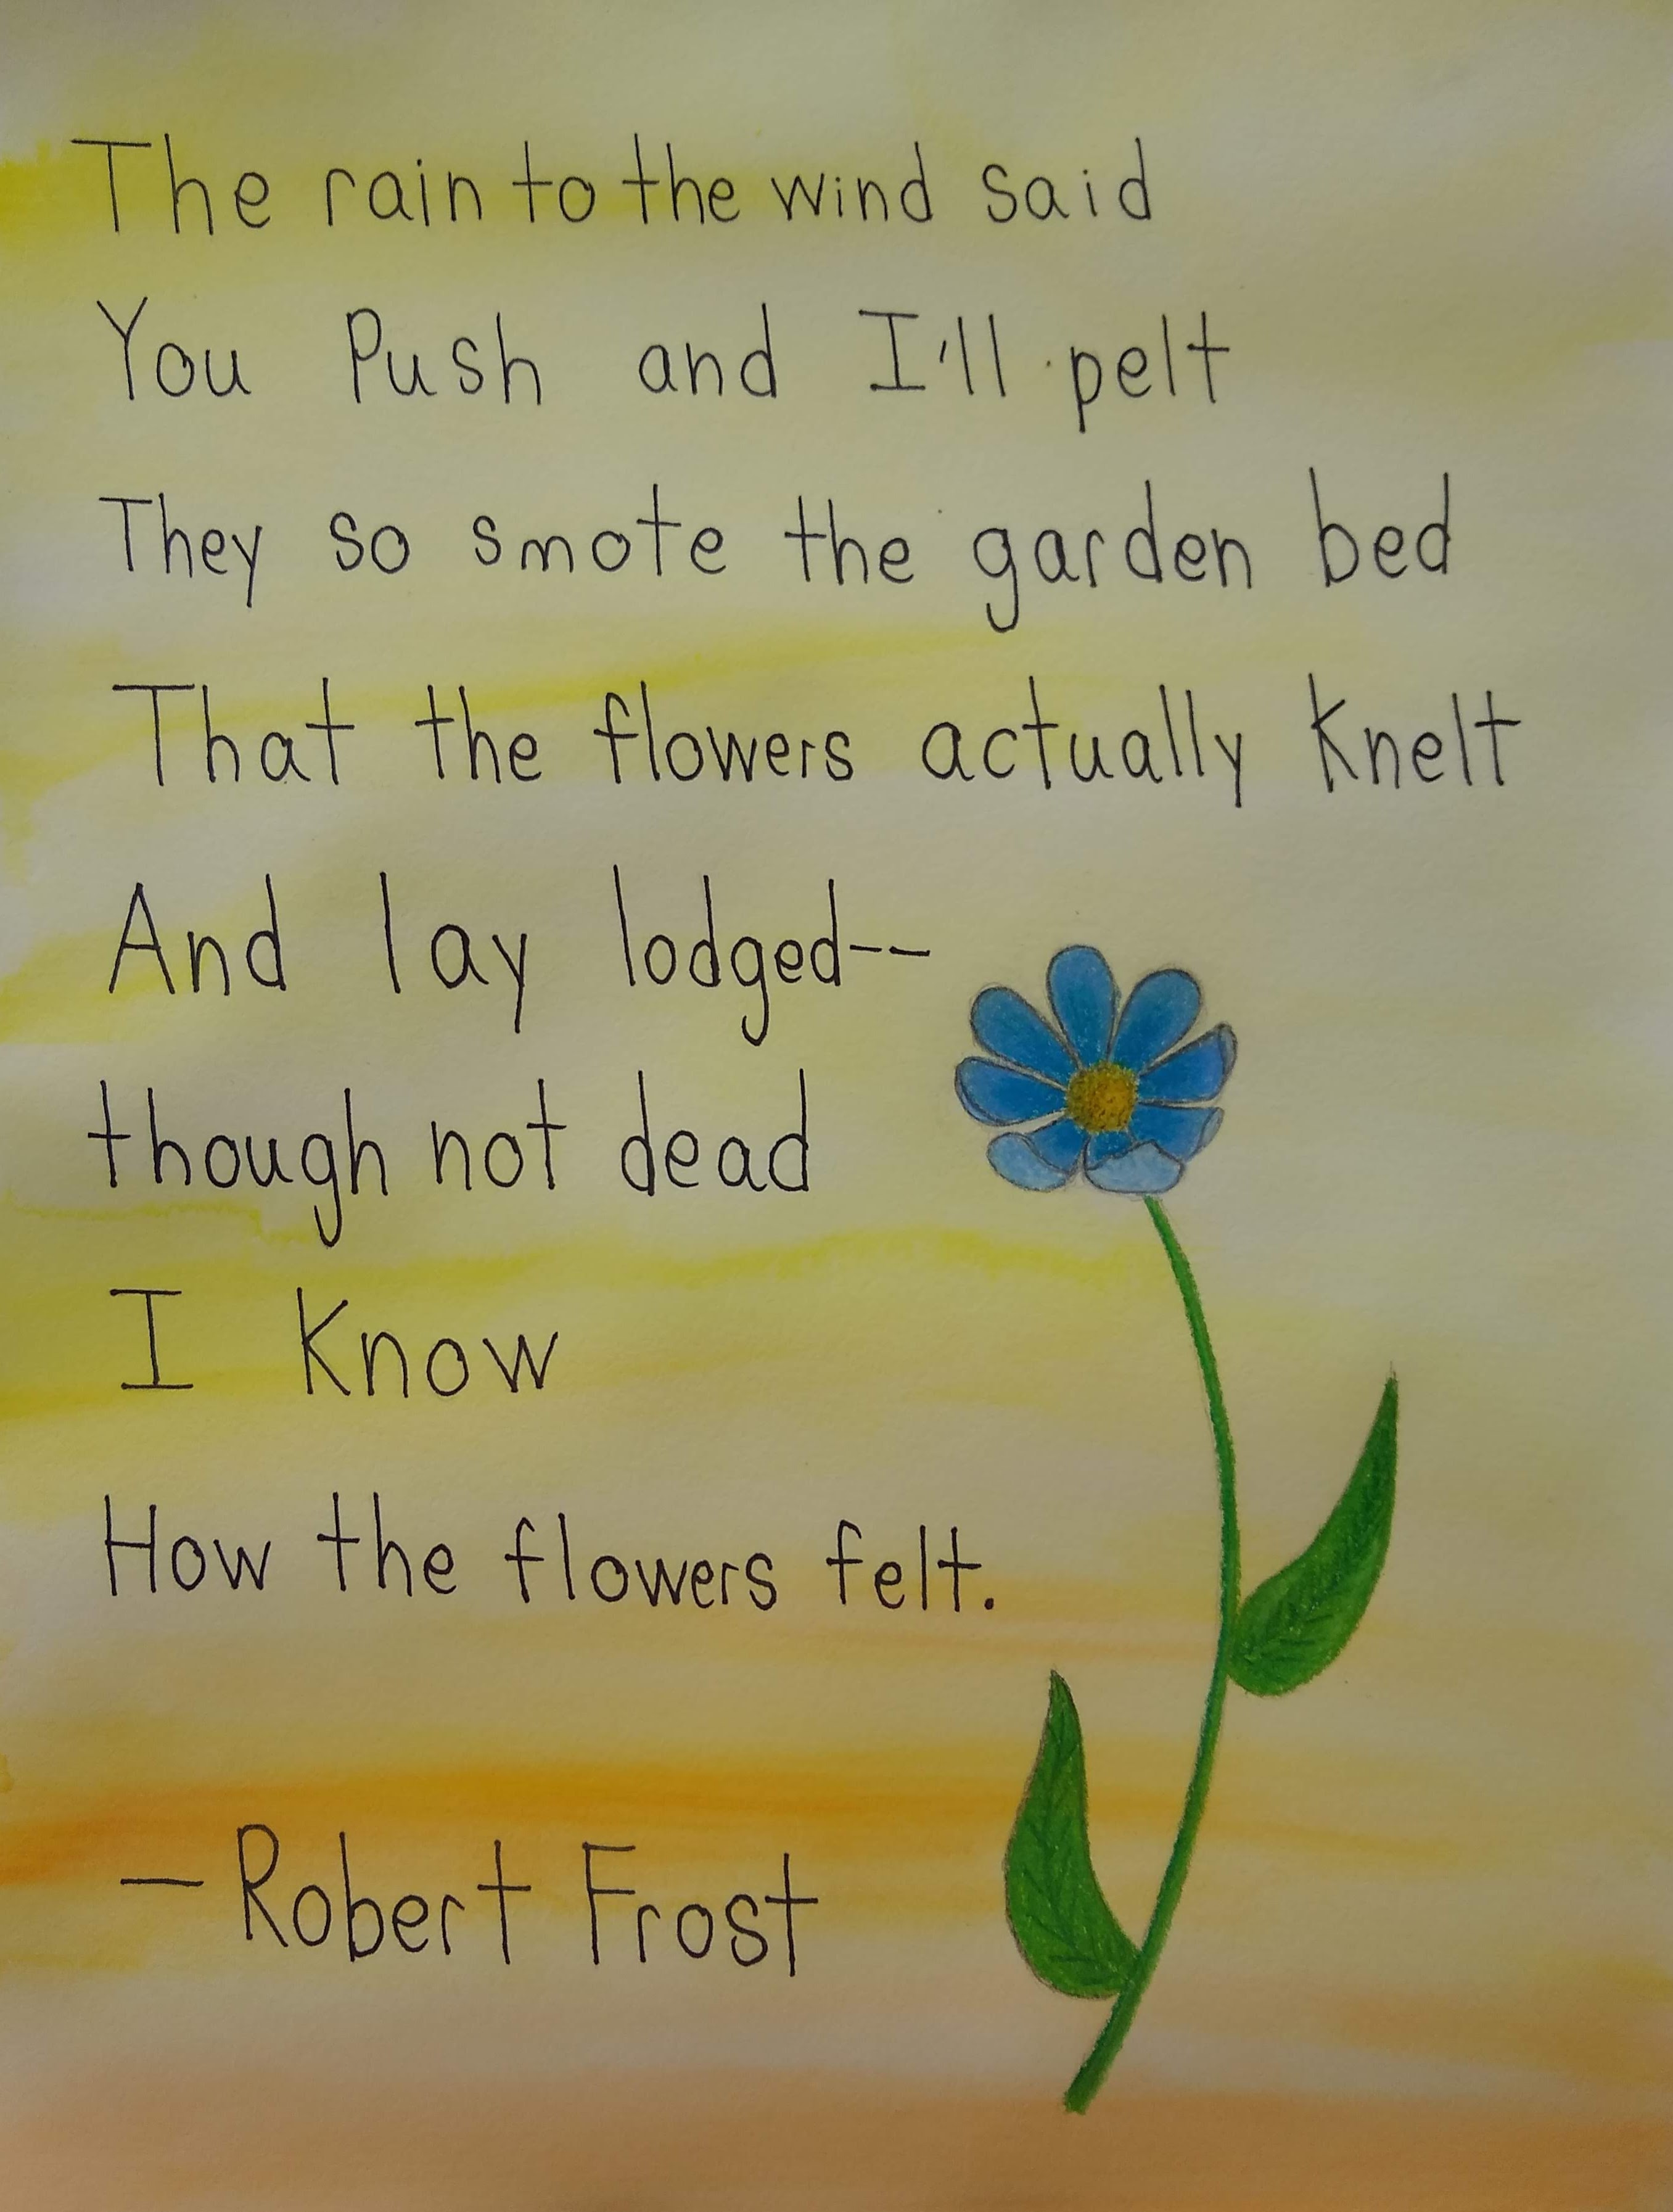 The rain to the wind said
You Push and I'll pelt
They so smote the garden bed
That the flowers actually Knelt
And lay lodged--
though not dead
I Know
How the flowers felt.
—Robert Frost